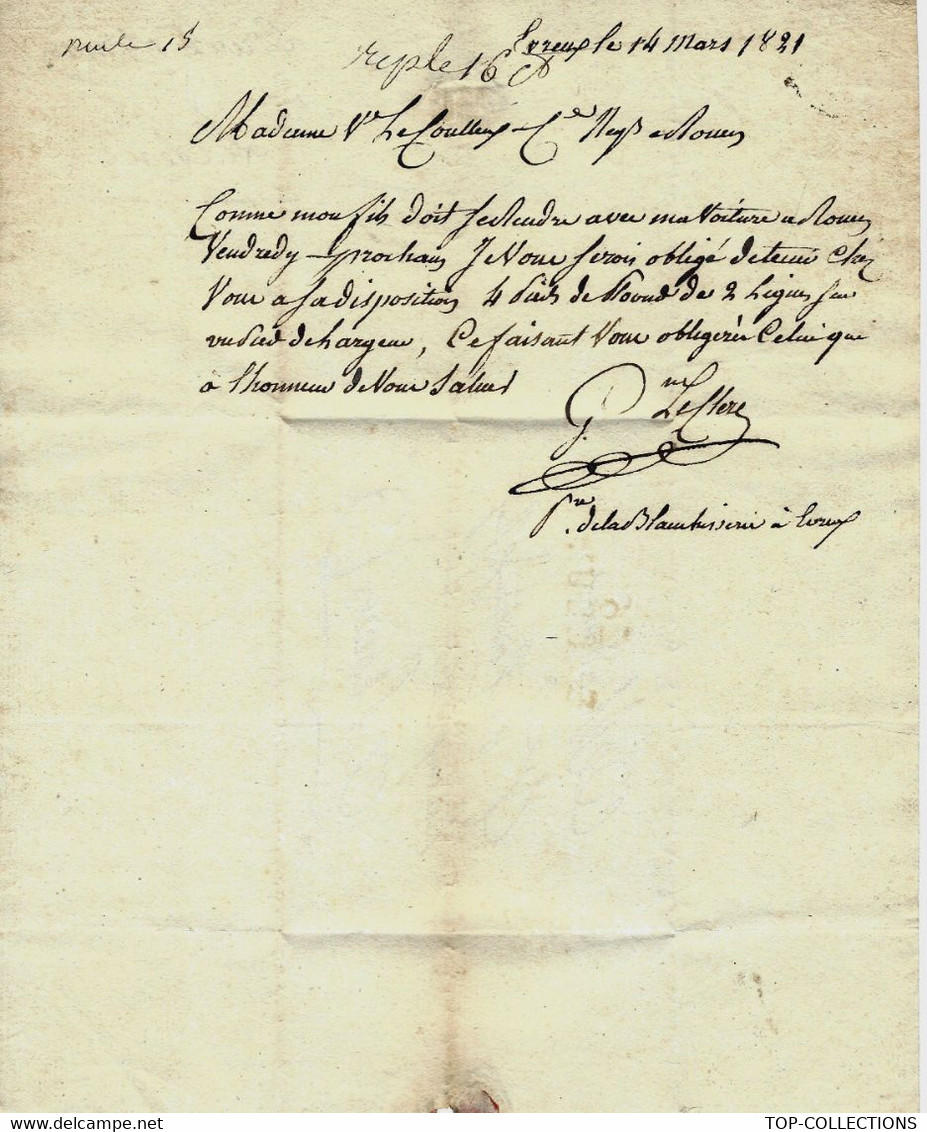 le 15
Evreux le 14 Mars 1821
rep le 16
Madame Ve Le Coulteux Ce Negt a Rouen
Comme mon fils doit se Rendre avec ma Voiture a Rouen
Vendredy prochain Je Vous serois obligé de tenir Chez
Vous a sa disposition 4 de 2 Lignes sur
un pied de Largeur, Ce faisant Vous obligerés Celui qui
a l'honneur de Vous Saluer
G. Le Clerc
de la Blanchisserie à Evreux
TOP-COLLECTIONS